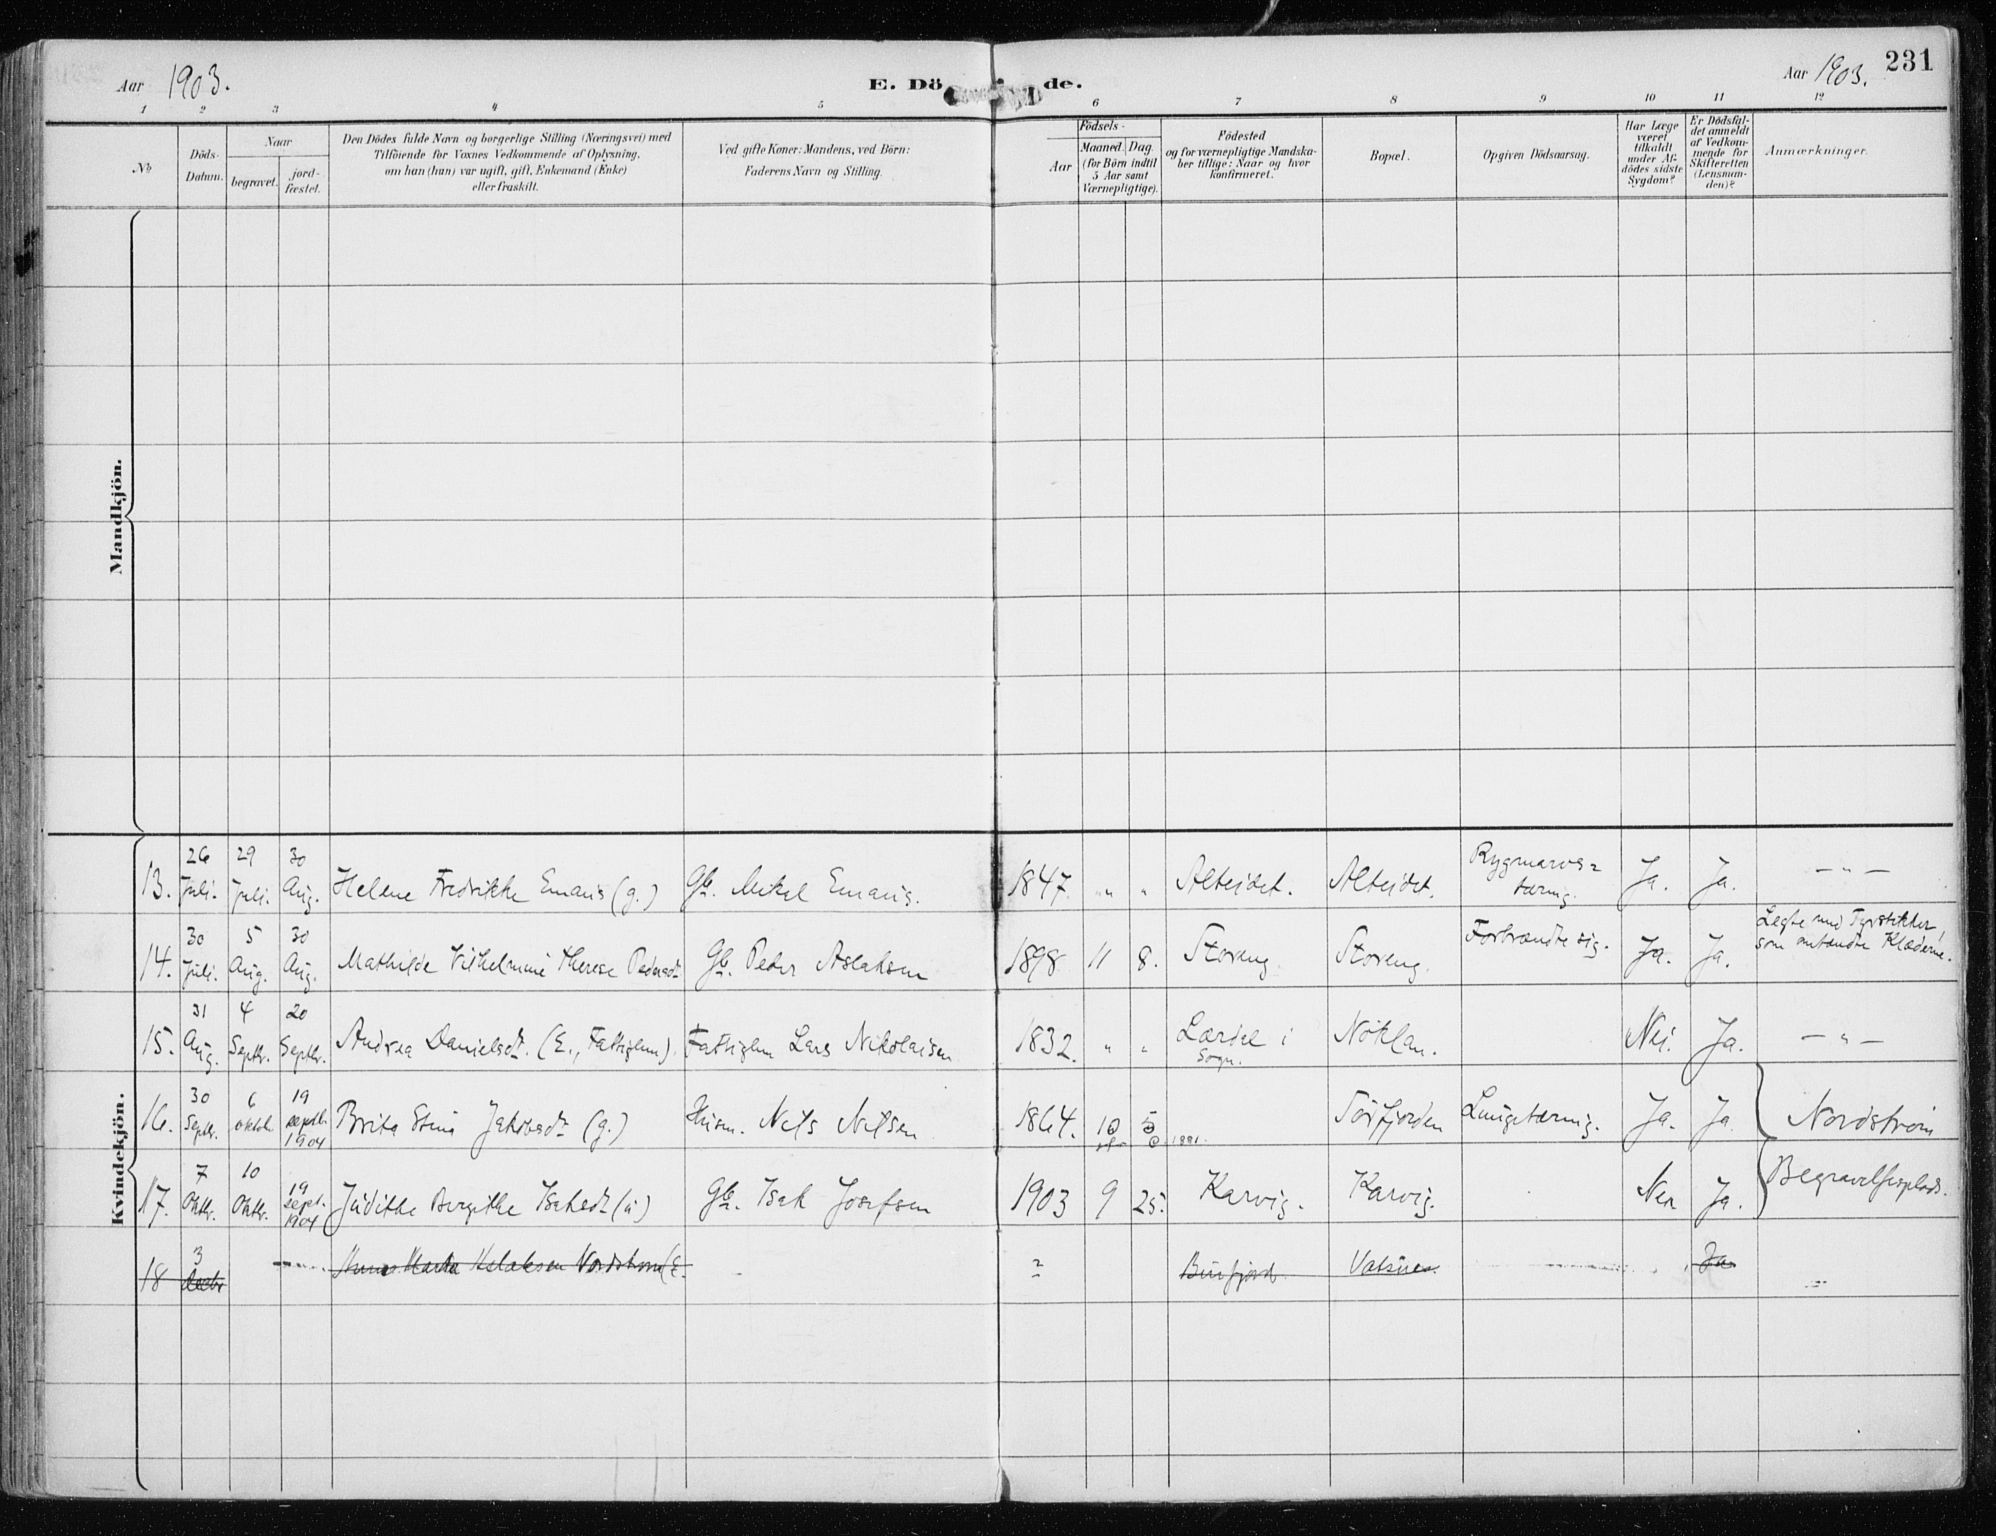 Aar 1903.
E. Dö de.
Aar 1903.
231
1 2 3 4 5 6 7 8 9 10 11 12
No
Döds-
Datum.
Naar
begravet.
jord-
fæstet.
Den Dödes fulde Navn og borgerlige Stilling (Næringsvei) med
Tilföiende for Voxnes Vedkommende af Oplysning,
om han (hun) var ugift, gift, Enkemand (Enke)
eller fraskilt.
Ved gifte Koner: Mandens, ved Börn:
Faderens Navn og Stilling.
Födsels-
Aar
Maaned. Dag.
(for Börn indtil
5 Aar samt
Værnepligtige).
Födested
og for værnepligtige Mandska-
ber tillige: Naar og hvor
konfirmeret.
Bopæl.
Opgiven Dödsaarsag.
Har Læge
været
tilkaldt
under Af-
dödes sidste
Sygdom?
Er Dödsfal-
det anmeldt
af Vedkom-
mende for
Skifteretten
(Lensman-
den)?
Anmærkninger.
Mandkjön.
Kvindekjön.
13. 26 Juli. 29 Juli. 30 Aug. Helene Fredrikke Emaus (g.) Gb. Mikel Emaus. 1847. " " Alteidet. Alteidet. Rygmarvs=
tæring. Ja. Ja. — " —
14. 30 Juli. 5 Aug. 30 Aug. Mathilde Vilhelmine Therese Pedersdt. Gb. Peder Aslaksen 1898 11 8. Storeng Storeng. Forbrændte sig. Ja. Ja. Legte med Fyrstikker,
som antændte Klæderne.
15. 31 Aug. 4 Septbr. 20 Septbr. Andrea Danielsdt. (E., Fattiglem). Fattiglem Lars Nikolaisen 1832. " " Lærdal i
Sogn. Nöklan. Nei. Ja. — " —
16. 30 Septbr. 6 Oktbr. 19 septb. 1904 Brita Stina Jakobsdt (g.) Husm. Nils Nilsen 1864. 10 1881. Törfjorden Lungetæring. Ja. Ja Nordstrøm
17. 7 Oktbr. 10 Oktbr. 19 Sept. 1904 Judithe Bergithe Isaksdt (u) Gb. Isak Josefsen 1903 9 25. Karvig. Karvig. Nei Ja. Begravelsesplads.
18 3 Decbr Maria Nordstrom (E. ? Burfjord Ja